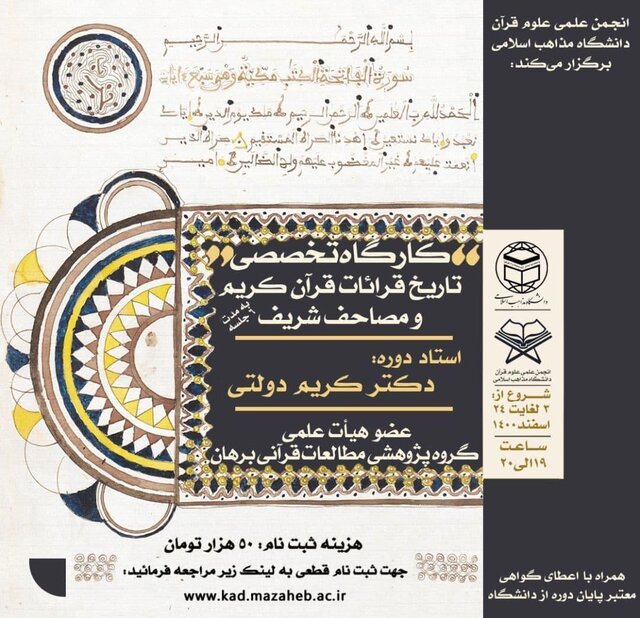 انجمن علمی علوم قرآن
دانشگاه مذاهب اسلامی
برگزار می‌کند:
بسم الله الرحمن الرحیم
سورة الفاتحة الکتب مکیة وهی سبع ءایات
الحمد لله رب العلمین الرحمن الرحیم ملک یوم الدین إیاک
نعبد وإیاک نستعین إهدنا الصراط المستقیم صراط الذین
أنعمت علیهم غیر المغضوب علیهم ولا الضالین امین
کارگاه تخصصی
تاریخ قرائات قرآن کریم
و مصاحف شریف
به مدت
جلسه
استاد دوره:
دکتر کریم دولتی
عضو هیأت علمی
گروه پژوهشی مطالعات قرآنی برهان
دانشگاه مذاهب اسلامی
انجمن علمی علوم قرآن
دانشگاه مذاهب اسلامی
شروع از:
۳ لغایت ۲۴
اسفند ۱۴۰۰
ساعت
۱۹ الی ۲۰
هزینه ثبت نام: ۵۰ هزار تومان
جهت ثبت نام قطعی به لینک زیر مراجعه فرمائید:
www.kad.mazaheb.ac.ir
همراه با اعطای گواهی
معتبر پایان دوره از دانشگاه